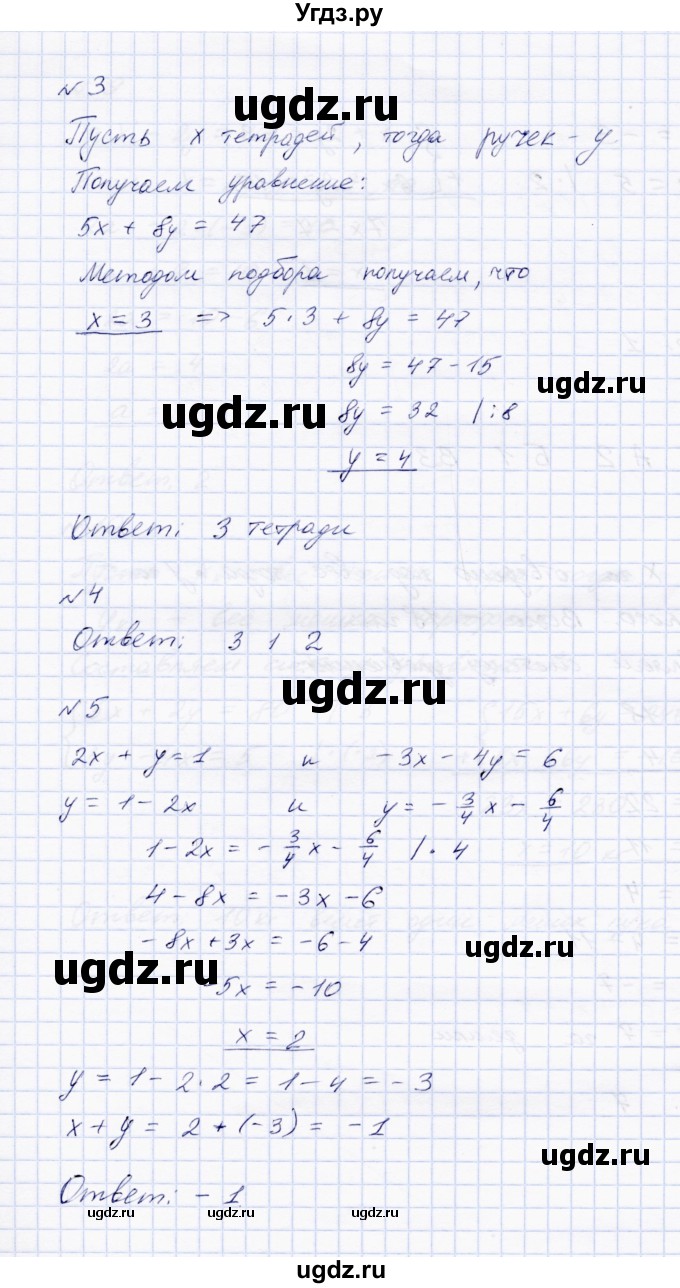 Угдз.ру
№3
ugdz.ru
Пусть x тетрадей, тогда ручек - y
Получаем уравнение:
5x + 8y = 47
Методом подбора получаем, что
x = 3 => 5·3 + 8y = 47
8y = 47 - 15
ugdz.ru
ugdz.ru
8y = 32 /:8
y = 4
Ответ: 3 тетради
№4
Ответ: 3 1 2
ugdz.ru
№5
2x + y = 1 и -3x - 4y = 6
y = 1 - 2x и y = - 3/4 x - 6/4
1 - 2x = - 3/4 x - 6/4 /· 4
4 - 8x = -3x - 6
-8x + 3x = -6 - 4
ugdz.ru
ugdz.ru
-5x = -10
x = 2
y = 1 - 2·2 = 1 - 4 = -3
x + y = 2 + (-3) = -1
ugdz.ru
Ответ: -1
ugdz.ru ugdz.ru ugdz.ru
ugdz.ru